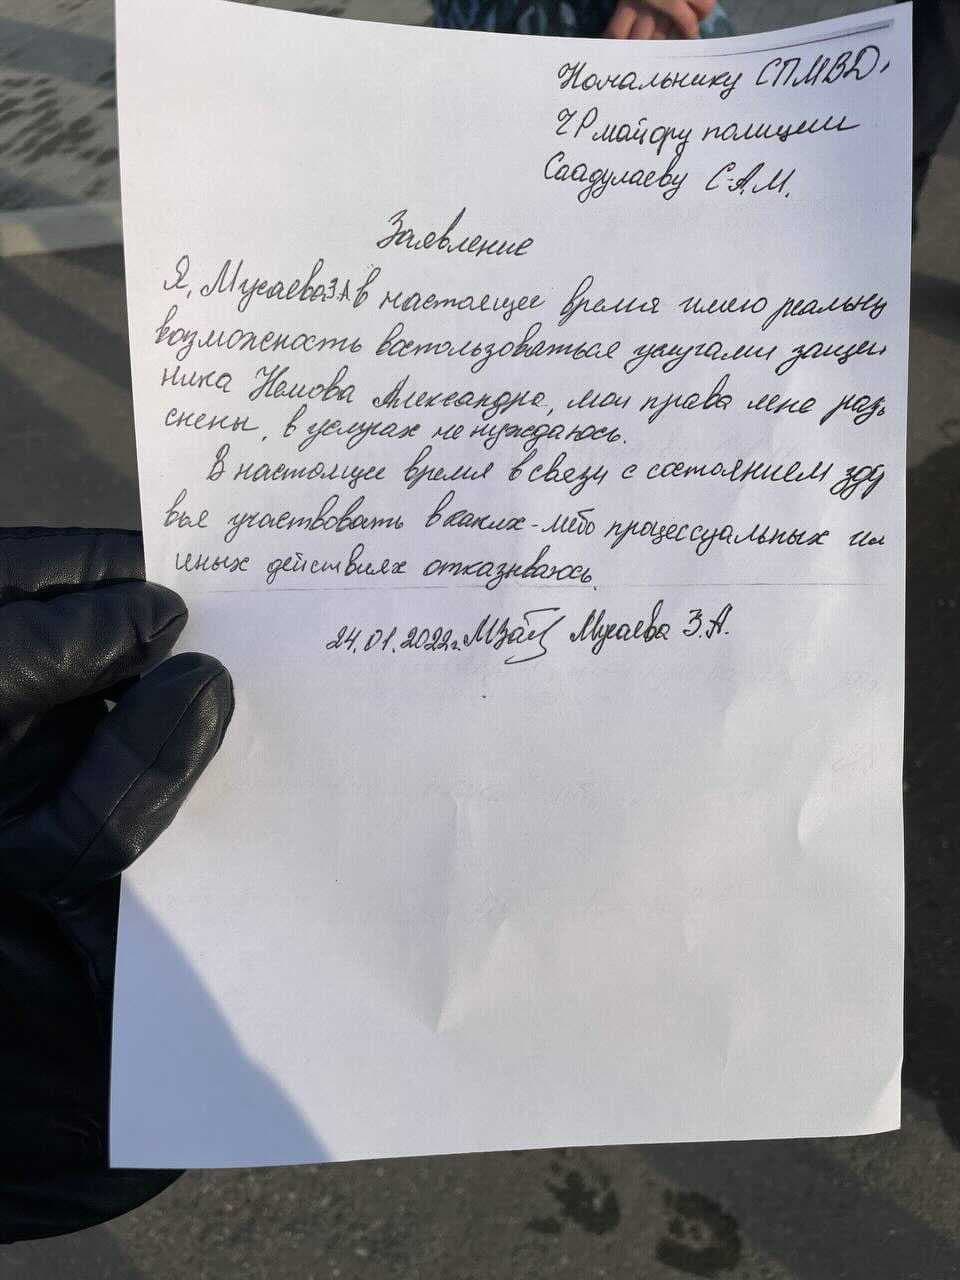 Начальнику СПМВД
ЧР майору полиции
Саадулаеву С-А.М.
Заявление
Я, Мусаева З А в настоящее время имею реальну
возможность воспользоваться услугами защит
ника Немова Александра, мои права мне разъ
снены, в услугах не нуждаюсь.
В настоящее время в связи с состоянием здр
вья участвовать в каких-либо процессуальных ил
иных действиях отказываюсь.
24.01.2022г. Мусаева З.А.